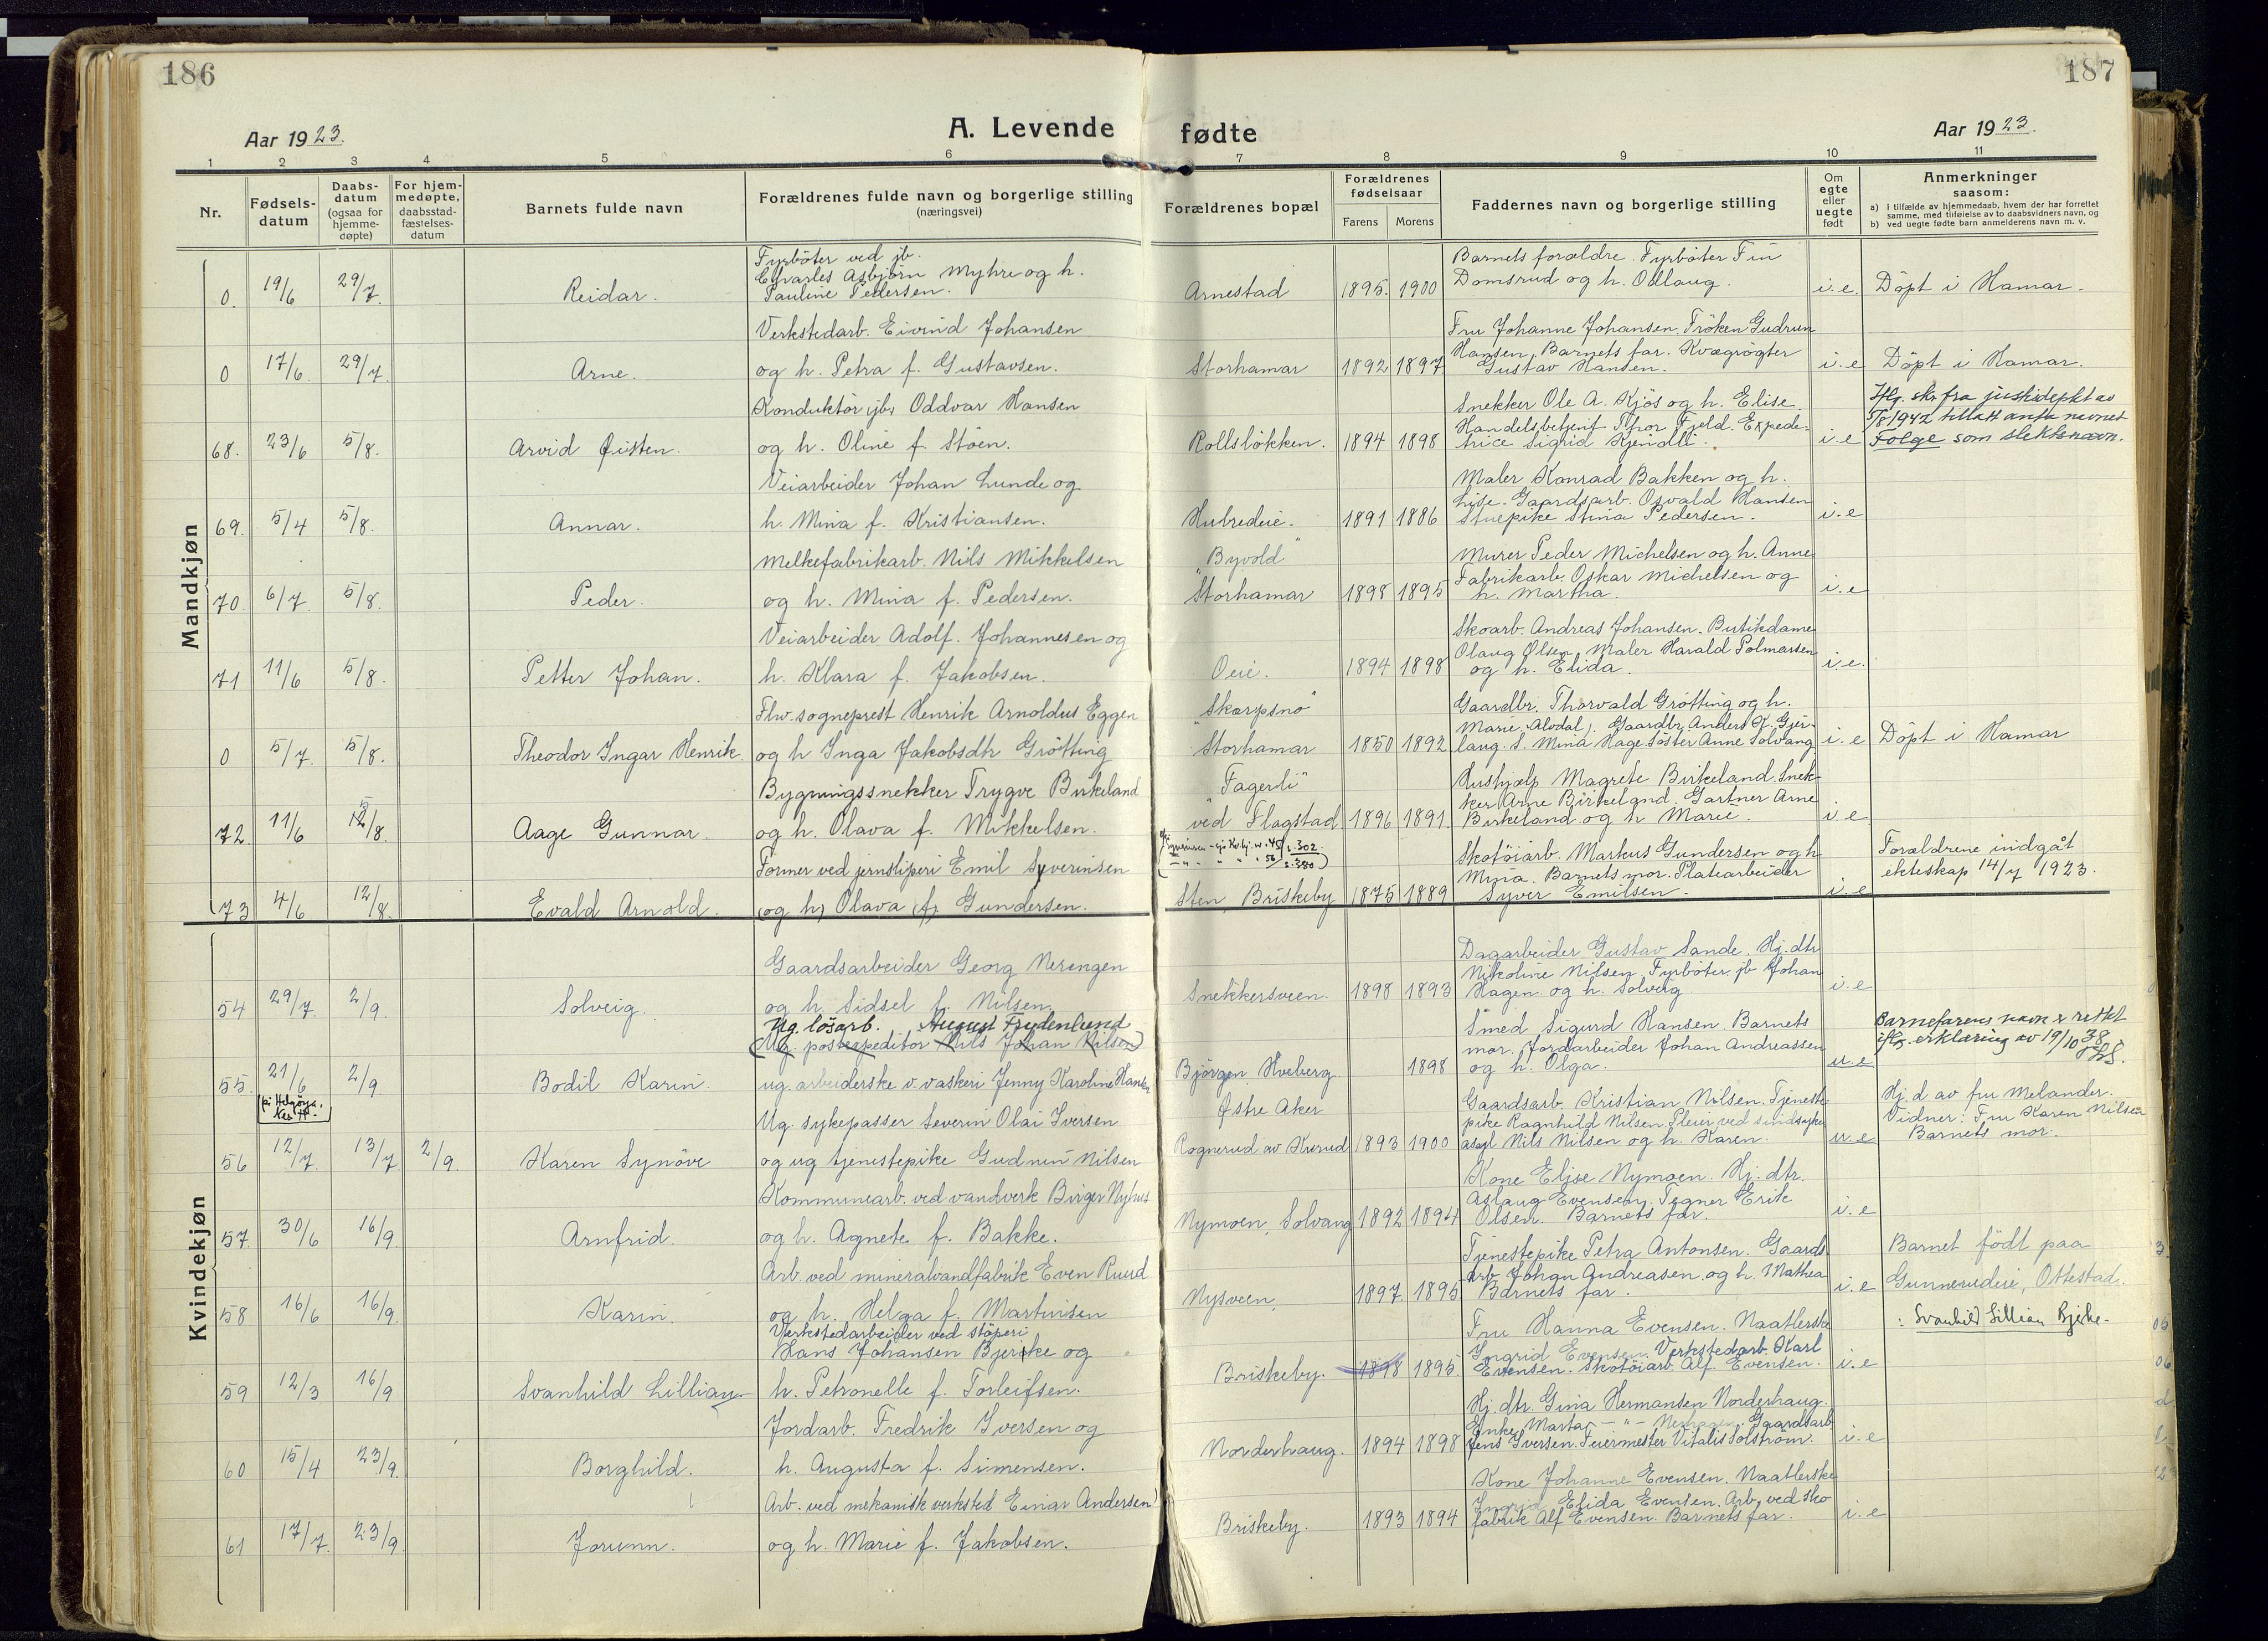 186
187
Aar 1923.
A. Levende fødte
Aar 1923.
1 2 3 4 5 6 7 8 9 10 11
Nr.
Fødsels-
datum
Daabs-
datum
(ogsaa for
hjemme-
døpte)
For hjem-
medøpte,
daabsstad-
fæstelses-
datum
Barnets fulde navn
Forældrenes fulde navn og borgerlige stilling
(næringsvei)
Forældrenes bopæl
Forældrenes
fødselsaar
Farens Morens
Faddernes navn og borgerlige stilling
Om
egte
eller
uegte
født
Anmerkninger
saasom:
a) i tilfælde av hjemmedaab, hvem der har forrettet
samme, med tilføielse av to daabsvidners navn, og
b) ved uegte fødte barn anmelderens navn m. v.
Mandkjøn
0. 19/6 29/7. Reidar.
Fyrböter ved jb.
Charles Asbjörn Myhre og h.
Pauline Pedersen.
Arnestad 1895. 1900
Barnets forældre. Fyrböter Finn
Domsrud og h. Ollaug.
i.e. Döpt i Hamar.
0 17/6. 29/7. Arne.
Verkstedarb. Eivind Johansen
og h. Petra f. Gustavsen.
Storhamar 1892 1897
Fru Johanne Johansen. Fröken Gudrun
Hansen, Barnets far. Kvægrögter
Gustav Hansen.
i.e Döpt i Hamar.
68. 23/6 5/8. Arvid Øisten.
Konduktör (jb) Oddvar Hansen
og h. Oline f. Stöen.
Rollslökken. 1894 1898
Snekker Ole A. Kjös og h. Elise
Handelsbetjent Thor Fjeld. Expede-
trice Sigrid
i.e
Iflg. skr. fra justisdeptet av
1942 tillatt anta navnet
Folge som slektsnavn.
69. 5/4 5/8. Annar.
Veiarbeider Johan Lunde og
h. Mina f. Kristiansen.
Hubredeie. 1891 1886
Maler Konrad Bakken og h.
Lise. Gaardsarb. Osvald Hansen
Stuepike Stina Pedersen.
i.e
70. 6/7. 5/8. Peder.
Melkefabrikarb. Nils Mikkelsen
og h. Mina f. Pedersen.
"Byvold"
Storhamar 1898 1895
Murer Peder Michelsen og h. Anne
Fabrikarb. Oskar Michelsen og
h. Martha.
i.e
71 11/6 5/8. Petter Johan.
Veiarbeider Adolf. Johannesen og
h. Klara f. Jakobsen.
Oeie. 1894 1898
Skoarb. Andreas Johansen. Butikdame
Olaug Olsen, Maler Harald Polmarsen
og h. Elida.
i.e.
0 5/7. 5/8. Theodor Ingar Henrik
Fhv. sogneprest Henrik Arnoldus Eggen
og h Inga Jakobsdtr Grötting
"Skarpsno"
Storhamar 1850 1892
Gaardbr. Thorvald Grötting og h.
Marie, Alvdal). Gaardbr. Anders K. Gjer-
laug. S. Mina Hage. Söster Anne Solvang
i.e Döpt i Hamar
72. 11/6 12/8. Aage Gunnar.
Bygningssnekker Trygve Birkeland
og h. Olava f. Mikkelsen.
"Fagerli"
ved Flagstad 1896 1891.
Hushjælp Magrete Birkeland. Snek-
ker Arne Birkeland. Gartner Arne
Birkeland og h Marie.
i.e
73 4/6 12/8. Evald Arnold.
Former ved jernstöperi Emil Syverinsen
(og h) Olava (f) Gundersen.
s. 302.
s. 380
Sten, Briskeby 1875 1889
Skotöiarb. Markus Gundersen og h
Mina. Barnets mor. Platearbeider
Syver Emilsen.
i.e
Forældrene indgåt
ekteskap 14/7 1923.
Kvindekjøn
54 29/7. 2/9. Solveig.
Gaardsarbeider Georg Nerengen
og h. Sidsel f. Nilsen.
Snekkersveen. 1898 1893
Dagarbeider Gustav Sande. Hj. dtr
Nikoline Nilsen, Fyrböter jb Johan
Hagen. og h. Solveig
i.e
55. 21/6 2/9 Bodil Karin
(på Helgøya,
Nes H.)
Ug. lösarb. August Frydenlund
(Ug. postexpeditor Nils Johan Nilsen)
ug. arbeiderske v. vaskeri Jenny Karoline Hansen
Björgen, Hveberg. 1898
Smed Sigurd Hansen. Barnets
mor. Jordarbeider Johan Andreassen
og h. Olga.
u.e
Barnefarens navn er rettet
iflg. erklæring av 19/10 38
56 12/7. 13/7 2/9. Karen Synöve
Ug. sykepasser Severin Olai Iversen
og ug tjenestepike Gudrun Nilsen
Østre Aker
Rognerud av Kurud 1893 1900
Gaardsarb. Kristian Nilsen. Tjeneste-
pike Ragnhild Nilsen. Pleier ved sindsyke
asyl Nils Nilsen og h. Karen.
u.e
Hj. d av fru Melander.
Vidner: Fru Karen Nilsen
Barnets mor.
57. 30/6 16/9. Arnfrid.
Kommunearb. ved vandverk Birger Nyhus
og h. Agnete f. Bakke.
Nymoen, Solvang 1892 1894
Kone Elise Nymoen. Hj. dtr.
Aslaug Evensen, Tegner Erik
Olsen. Barnets far.
i.e
58 16/6 16/9. Karin.
Arb. ved mineralvandfabrik Even Ruud
og h. Helga f. Martinsen
Nysveen, 1897. 1895
Tjenestepike Petra Antonsen. Gaards-
arb. Johan Andreasen. og h. Mathea
Barnets far.
i.e
Barnet födt paa
Gunnerudeie, Ottestad.
59 12/3 16/9 Svanhild Lillian
Verkstedarbeider ved stöperi
Hans Johansen Bjerke og
h. Petronelle f. Torleifsen.
Briskeby. 1898 1895
Fru Hanna Evensen. Naatlerske
Ingrid Evensen. Verkstedarb. Karl
Evensen. Skotöiarb. Alf. Evensen.
i.e
: Svanhild Lillian Bjerke.
60 15/4 23/9. Borghild.
Jordarb. Fredrik Iversen og
h. Augusta f. Simensen.
Norderhaug. 1894 1898
Hj. dtr. Gina Hermansen Norderhaug.
Enke Marta — " — Gaardsarb.
Jens Iversen. Feiermester Vitalis Solström.
i.e
61 17/7. 23/9. Jorunn.
Arb. ved mekanisk verksted Einar Andersen
og h. Marie f. Jakobsen.
Briskeby. 1893 1894
Kone Johanne Evensen. Naatlerske
Ingrid Elida Evensen. Arb. ved sko
fabrik Alf Evensen. Barnets far.
i.e